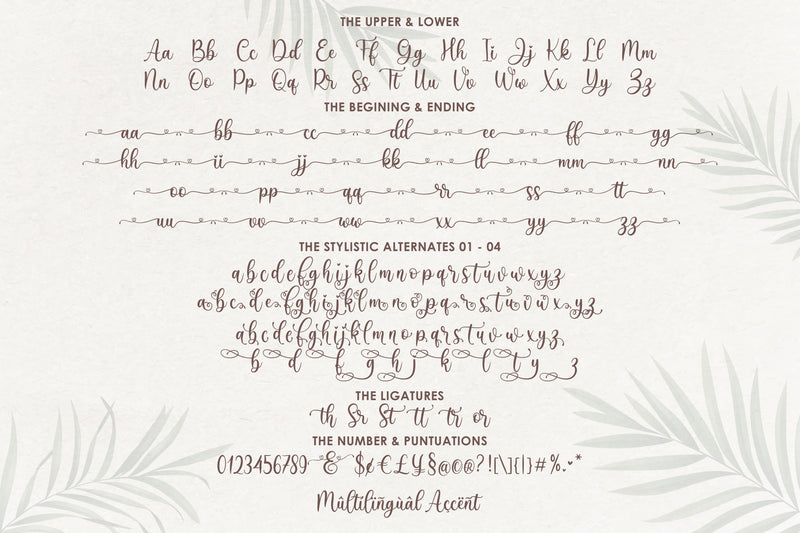 THE UPPER & LOWER
Aa Bb Cc Dd Ee Ff Gg Hh Ii Jj Kk Ll Mm
Nn Oo Pp Qq Rr Ss Tt Uu Vv Ww Xx Yy Zz
THE BEGINING & ENDING
aa bb cc dd ee ff gg
hh ii jj kk ll mm nn
oo pp qq rr ss tt
uu vv ww xx yy zz
THE STYLISTIC ALTERNATES 01 - 04
a b c d e f g h i j k l m n o p q r s t u v w x y z
a b c d e f g h i j k l m n o p q r s t u v w x y z
a b c d e f g h i j k l m n o p q r s t u v w x y z
b d f g h j k l t y z
THE LIGATURES
th Sr St tt tr or
THE NUMBER & PUNTUATIONS
0123456789 & $¢€£¥§@©®?![\]{|}#%.,*
Mûltilíñgùàl Açcënt